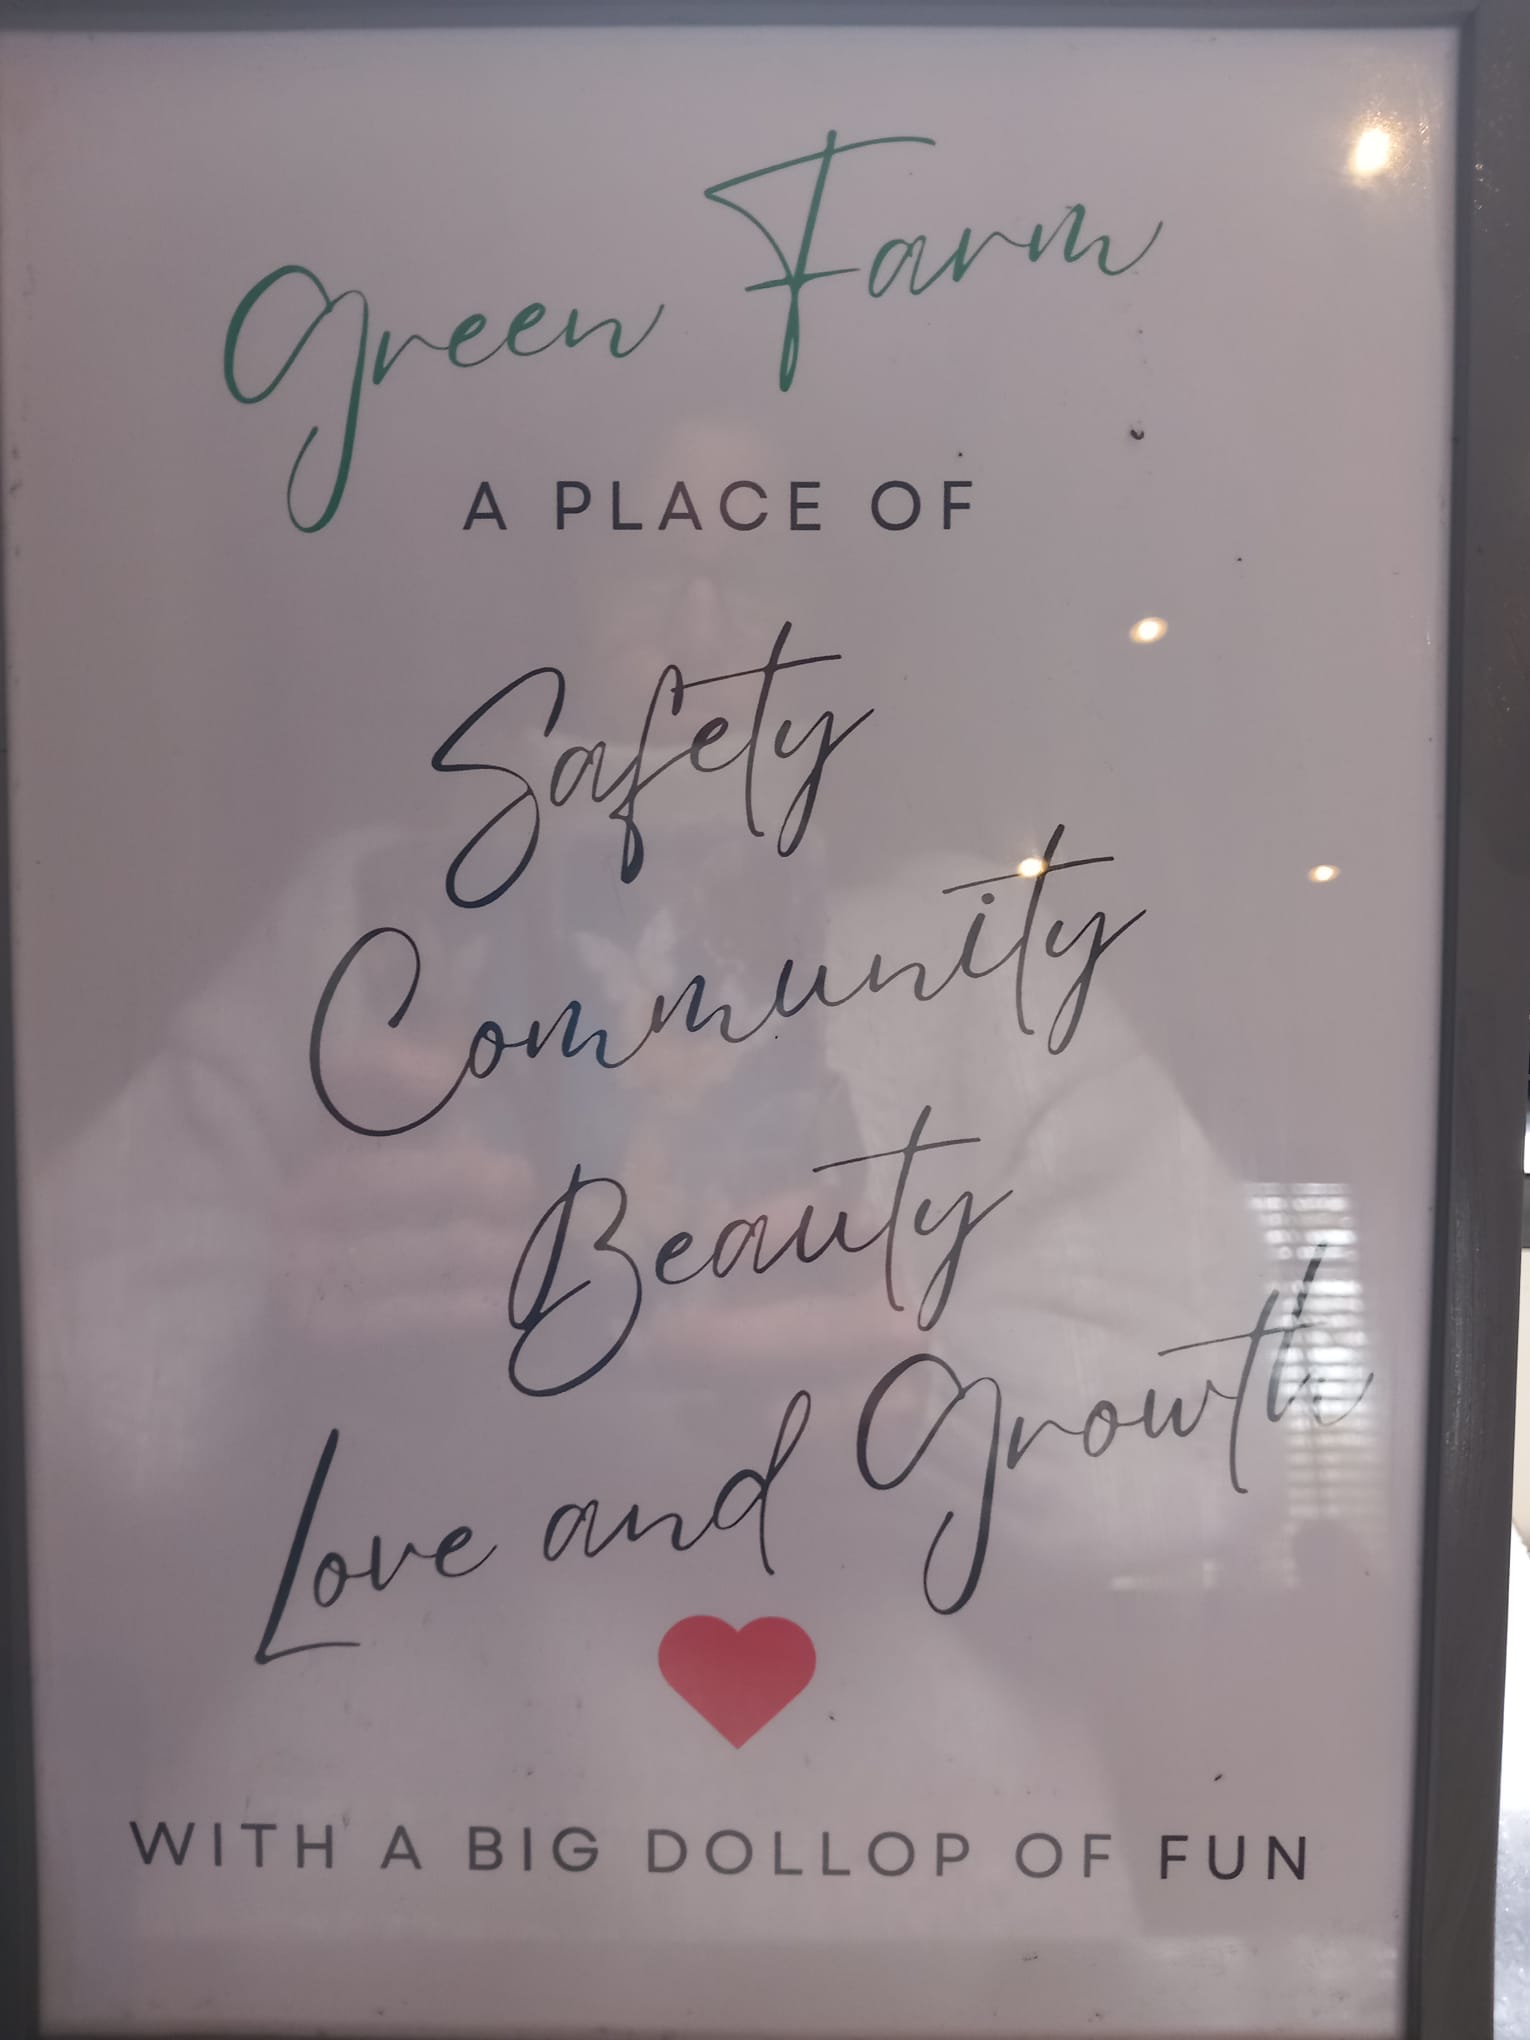 Green Farm
A PLACE OF
Safety
Community
Beauty
Love and Growth
WITH A BIG DOLLOP OF FUN